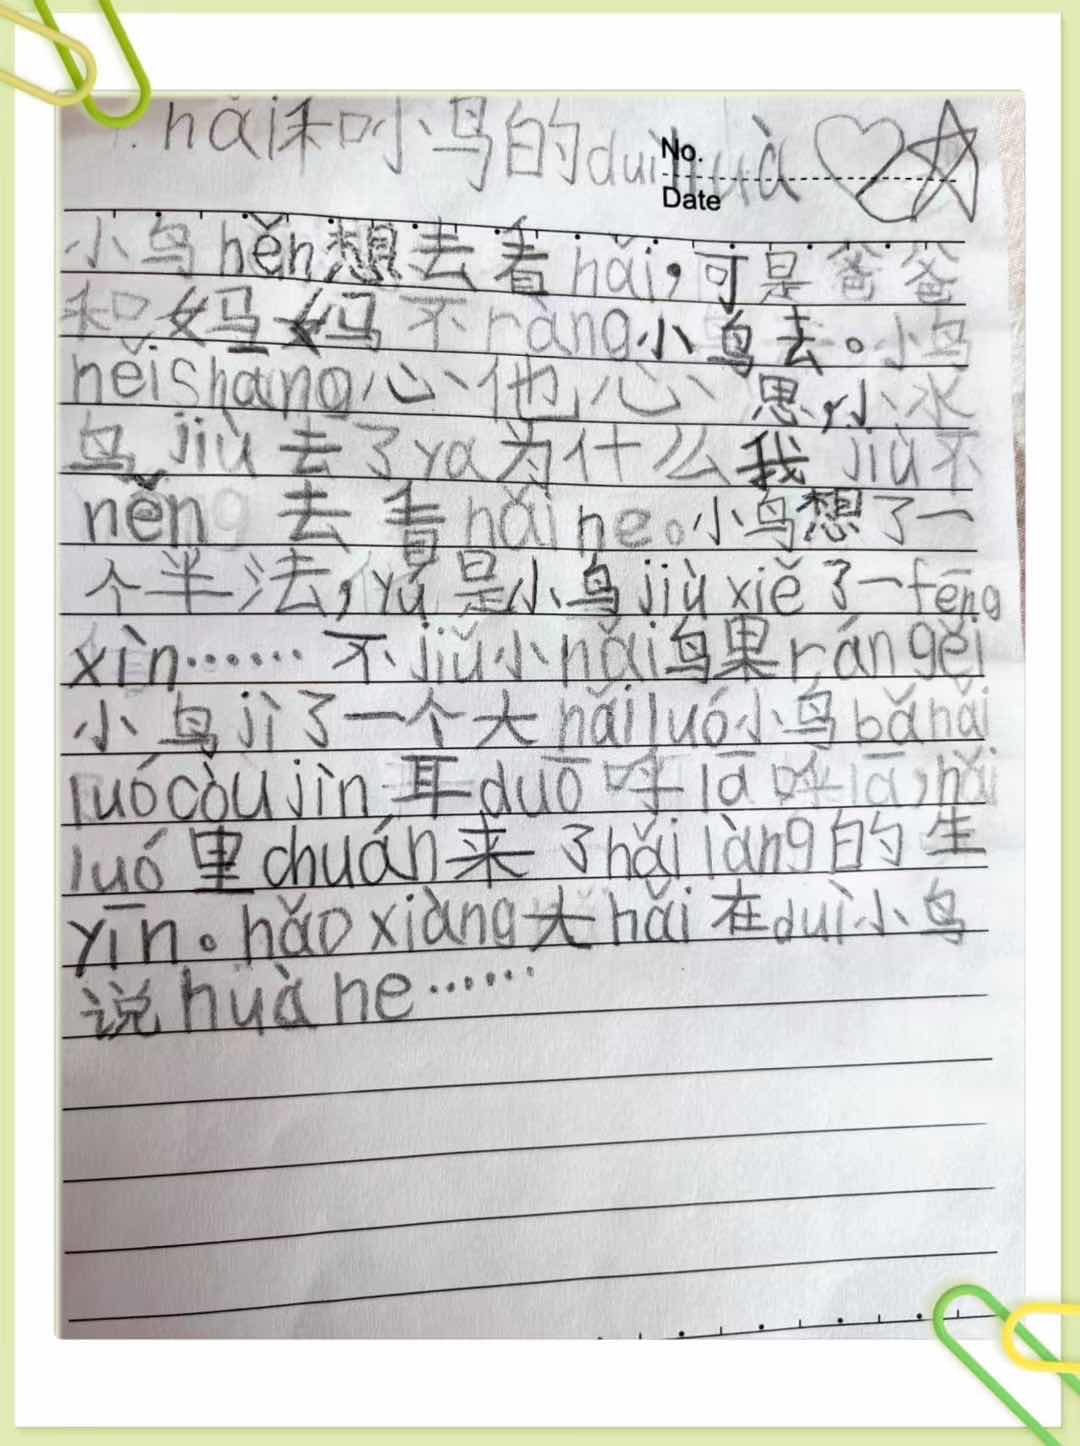 hǎi和小鸟的duìhuà
No.
Date
小鸟hěn想去看hǎi，可是爸爸
和妈妈不ràng小鸟去。小鸟
hěishāng心，他心思，小水
鸟jiù去了ya为什么我jiù不
něng去看hǎine。小鸟想了一
个半法，yú是小鸟jiùxiě了一fēng
xìn……不jiǔ小hǎi鸟果rángěi
小鸟jì了一个大hǎiluó小鸟bǎhǎi
luócòujìn耳duō呼lā呼lā，hǎi
luó里chuán来了hǎilàng的生
yīn。hǎoxiàng大hǎi在duì小鸟
说huàne……